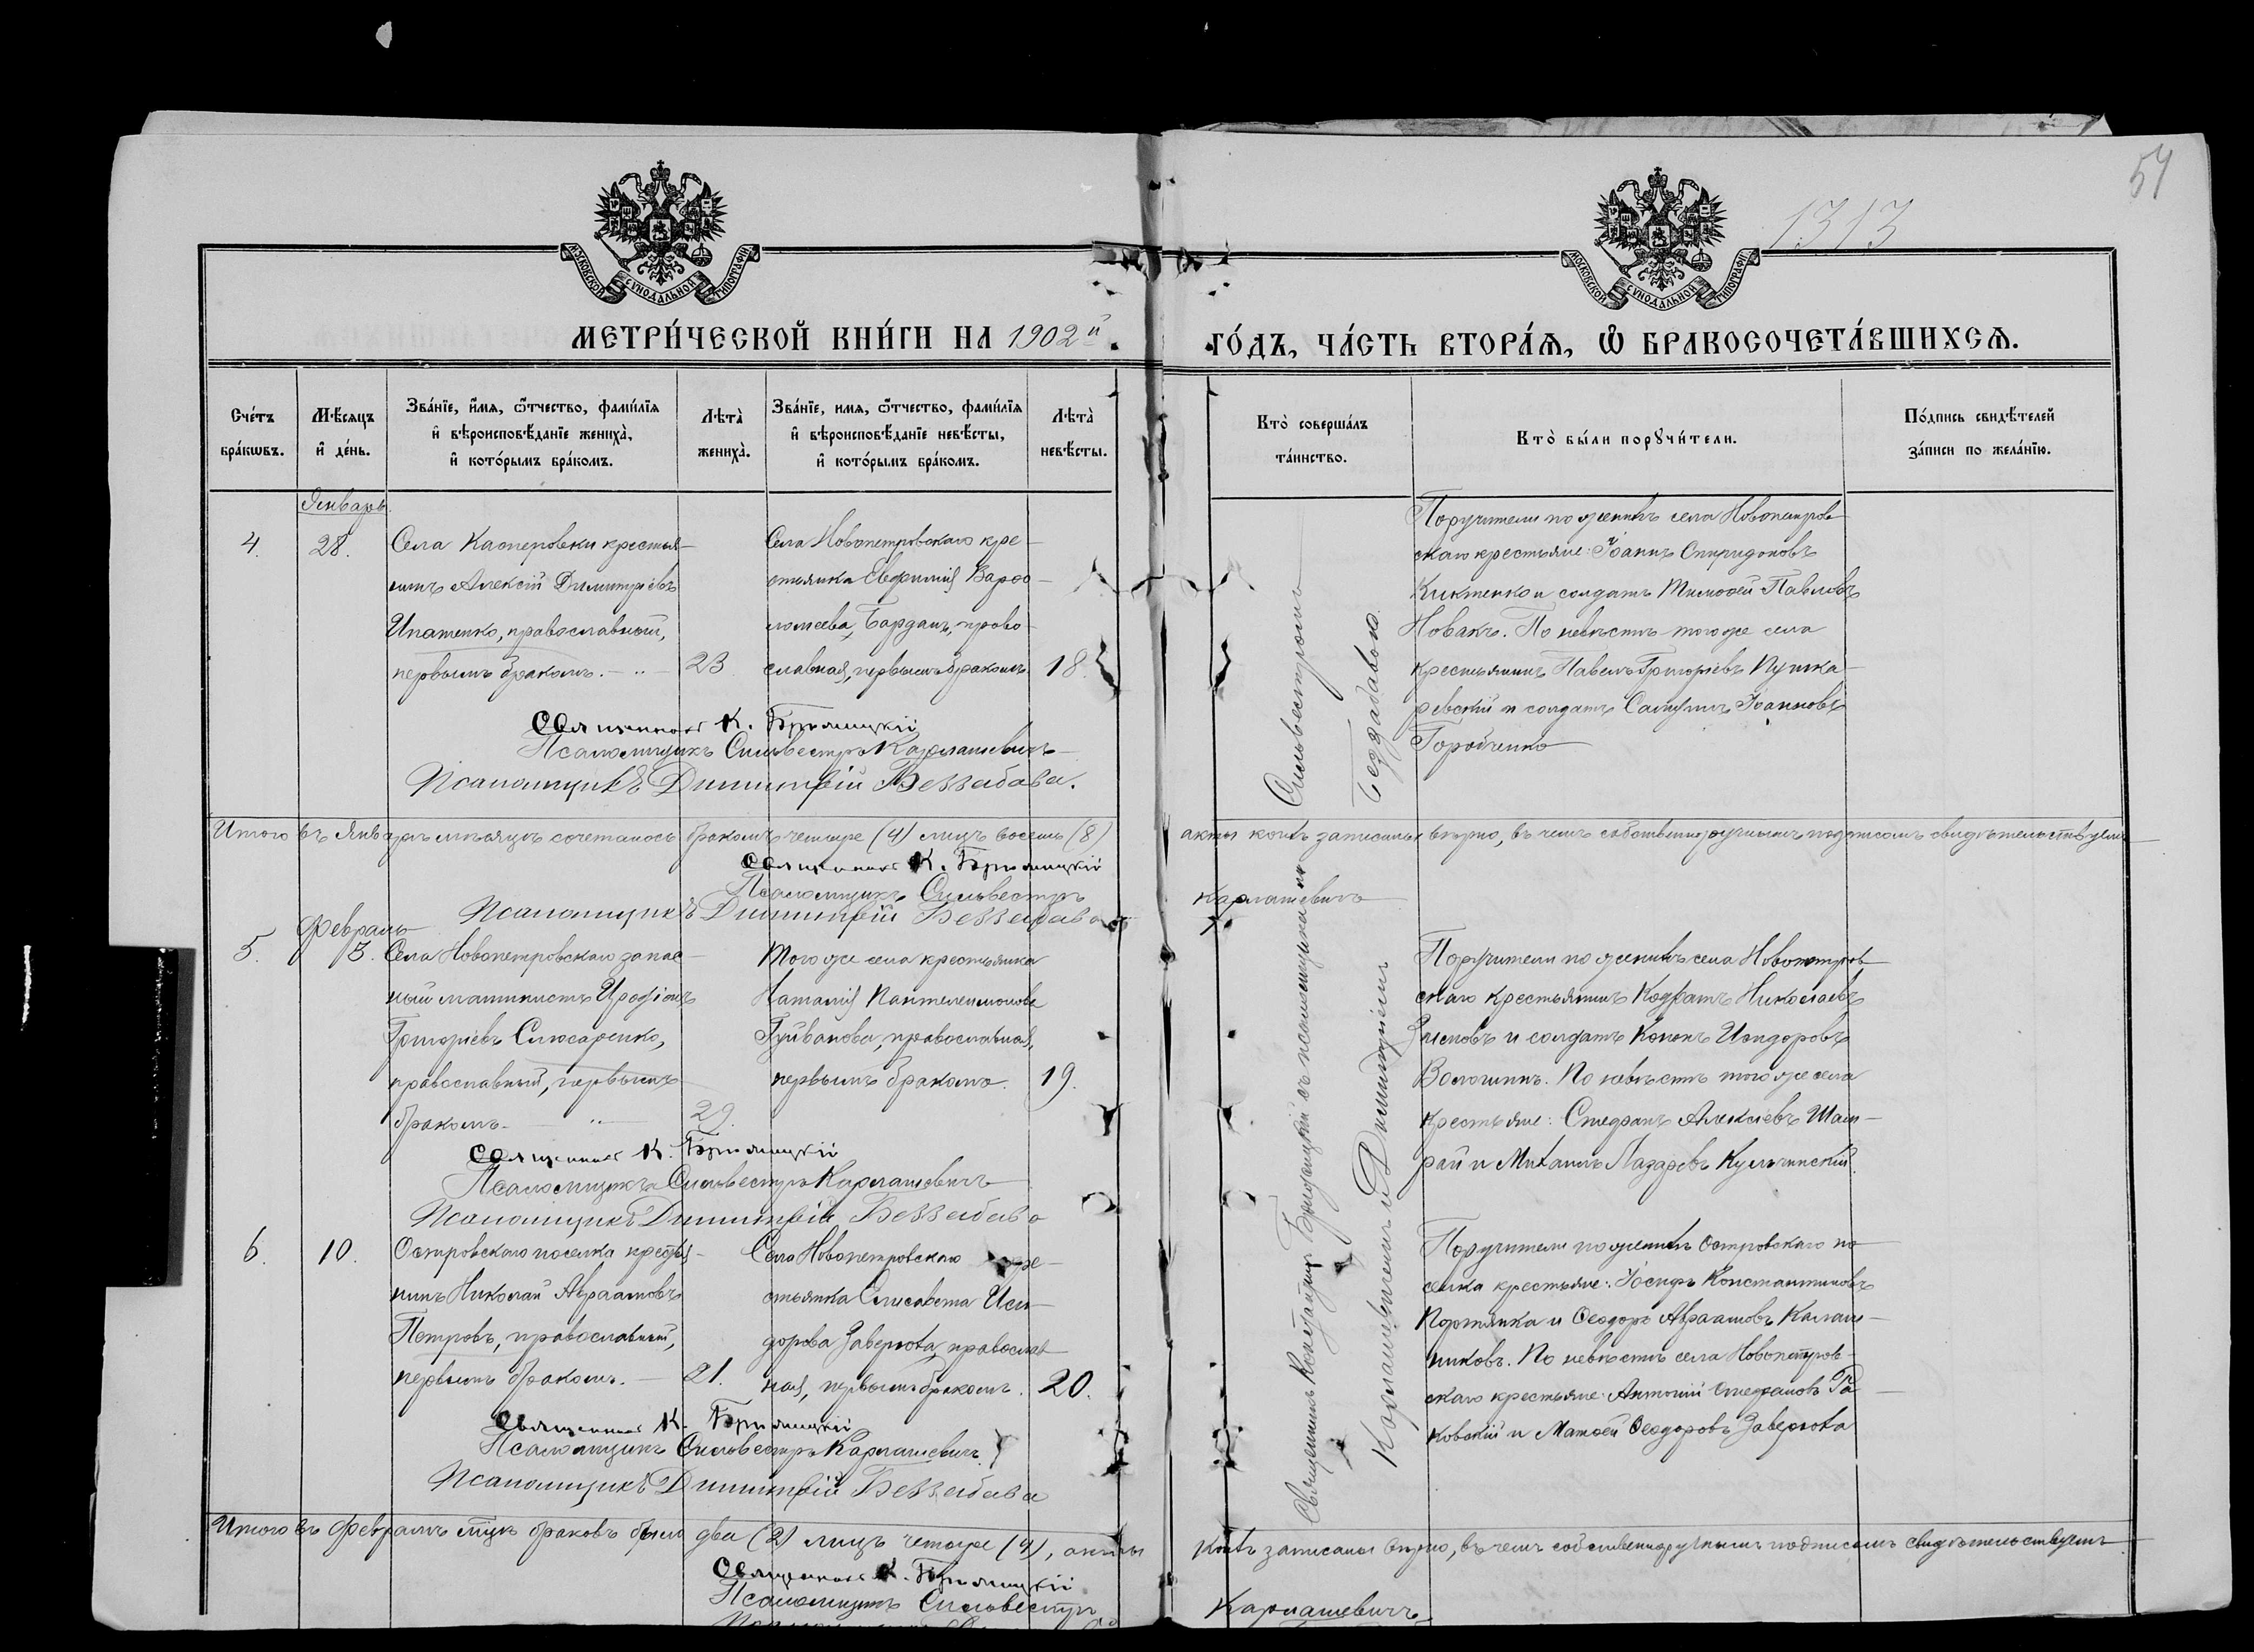 54
1313
МОСКОВСКОЙ СѴНОДАЛЬНОЙ ТИПОГРАФІИ
МОСКОВСКОЙ СѴНОДАЛЬНОЙ ТИПОГРАФІИ
МЕТРИ́ЧЕСКОЙ КНИ́ГИ НА 1902й.
ГО́ДЪ, ЧА́СТЬ ВТОРА́Ѧ, Ѽ БРАКОСОЧЕТА́ВШИХСѦ.
Сче́тъ бра́кѡвъ.
Мѣ́сѧцъ и҆ де́нь.
Зва́нїе, и҆́мѧ, ѻ҆́тчество, фами́лїѧ
и҆ вѣроисповѣ́данїе жениха̀,
и҆ кото́рымъ бра́комъ.
Лѣта̀ жениха̀.
Зва́нїе, имѧ, ѻ҆́тчество, фами́лїѧ
и҆ вѣроисповѣ́данїе невѣ́сты,
и҆ кото́рымъ бра́комъ.
Лѣта̀ невѣ́сты.
Кто̀ соверша́лъ
та́инство.
Кто̀ бы́ли порꙋчи́тели.
По́дпись свидѣ́телей
за́писи по жела́нїю.
Январь.
4.
28.
Села Касперовки крестья-
нинъ Алексій Димитріевъ
Ипатенко, православный,
первымъ бракомъ.
23.
Села Новопетровскаго кре-
стьянка Евфимія Варѳо-
ломеева Бардашъ, право-
славная, первымъ бракомъ.
18.
Поручители по женихѣ села Новопетров-
скаго крестьяне: Іоаннъ Спиридоновъ
Киктенко и солдатъ Тимоѳей Павловъ
Новакъ. По невѣстѣ того же села
крестьянинъ Павелъ Григоріевъ Пушка-
ревскій и солдатъ Іоанновъ
Горобченко
Священникъ К. Бридицкій
Псаломщикъ Сильвестръ Карпашевичъ
Псаломщикъ Димитрій Беззабава.
Итого въ Январѣ мѣсяцѣ сочеталось бракомъ четыре (4) лицъ восемь (8)
акты коихъ записаны вѣрно, въ чемъ собственноручнымъ подписомъ свидѣтельствуемъ
Священникъ К. Бридицкій
Псаломщикъ Сильвестръ
Карпашевичъ
Псаломщикъ Димитрій Беззабава
Февраль
5.
3.
Села Новопетровскаго запас-
ный машинистъ Иродіонъ
Григоріевъ Слюсаренко,
православный, первымъ
бракомъ.
29.
Того же села крестьянка
Наталія Пантелеимонова
Гуйванова, православная,
первымъ бракомъ.
19.
Поручители по женихѣ села Новопетров-
скаго крестьянинъ Кодратъ Николаевъ
и солдатъ Кононъ Исидоровъ
Волошинъ. По невѣстѣ того же села
крестьяне: Стефанъ Алексіевъ Шам-
рай и Михаилъ Лазаревъ Кульчинскій.
Священникъ К. Бридицкій
Псаломщикъ Сильвестръ Карпашевичъ
Псаломщикъ Димитрій Беззабава
6.
10.
Островскаго поселка крестья-
нинъ Николай Авраамовъ
Петровъ, православный,
первымъ бракомъ.
21.
Села Новопетровскаго кре-
стьянка Елисавета Иси-
дорова Заверюха, православ-
ная, первымъ бракомъ.
20.
Поручители по женихѣ Островскаго по-
селка крестьяне: Іосифъ Константиновъ
Портянка и Ѳеодоръ Авраамовъ Калаш-
никовъ. По невѣстѣ села Новопетров-
скаго крестьяне: Антоній Стефановъ Ра-
ковскій и Матѳей Ѳеодоровъ Заверюха
Священникъ К. Бридицкій
Псаломщикъ Сильвестръ Карпашевичъ
Псаломщикъ Димитрій Беззабава
Священникъ Бридицкій съ псаломщиками Сильвестромъ
Карпашевичемъ и Димитріемъ Беззабавою.
Итого въ Февралѣ м-цѣ браковъ было два (2) лицъ четыре (4), акты
коихъ записаны вѣрно, въ чемъ собственноручнымъ подписомъ свидѣтельствуемъ
Священникъ К. Бридицкій
Псаломщикъ Сильвестръ
Карпашевичъ